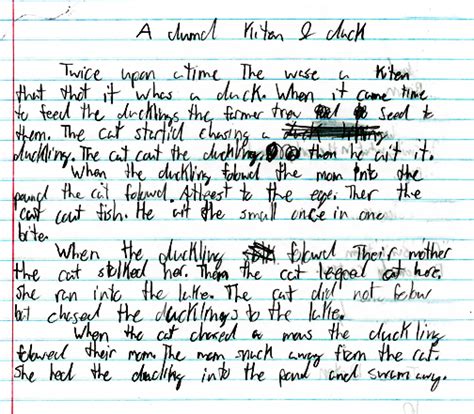 A dumd Kiten & duck
Twice upon a time The wase a Kiten
that thot it whas a duck. When it came time
to feed the ducklings the farmer trew seed to
them. The cat startid chasing a
duckling. The cat caut the duckling. then he ait it.
When the duckling folowd the mom into the
pound the cat folowd. At lest to the ege. Ther the
cat caut fish. He ait the small once in one
bite.
When the duckling folowd Their mother
the cat stolked her. Then the cat leeped at here,
She ran into the lake. The cat did not folow
but chased the ducklings to the lake.
When the cat chased a mows the duckling
folowed their mom. The mom snuck away from the cat.
She led the duckling into the pond and swam away.